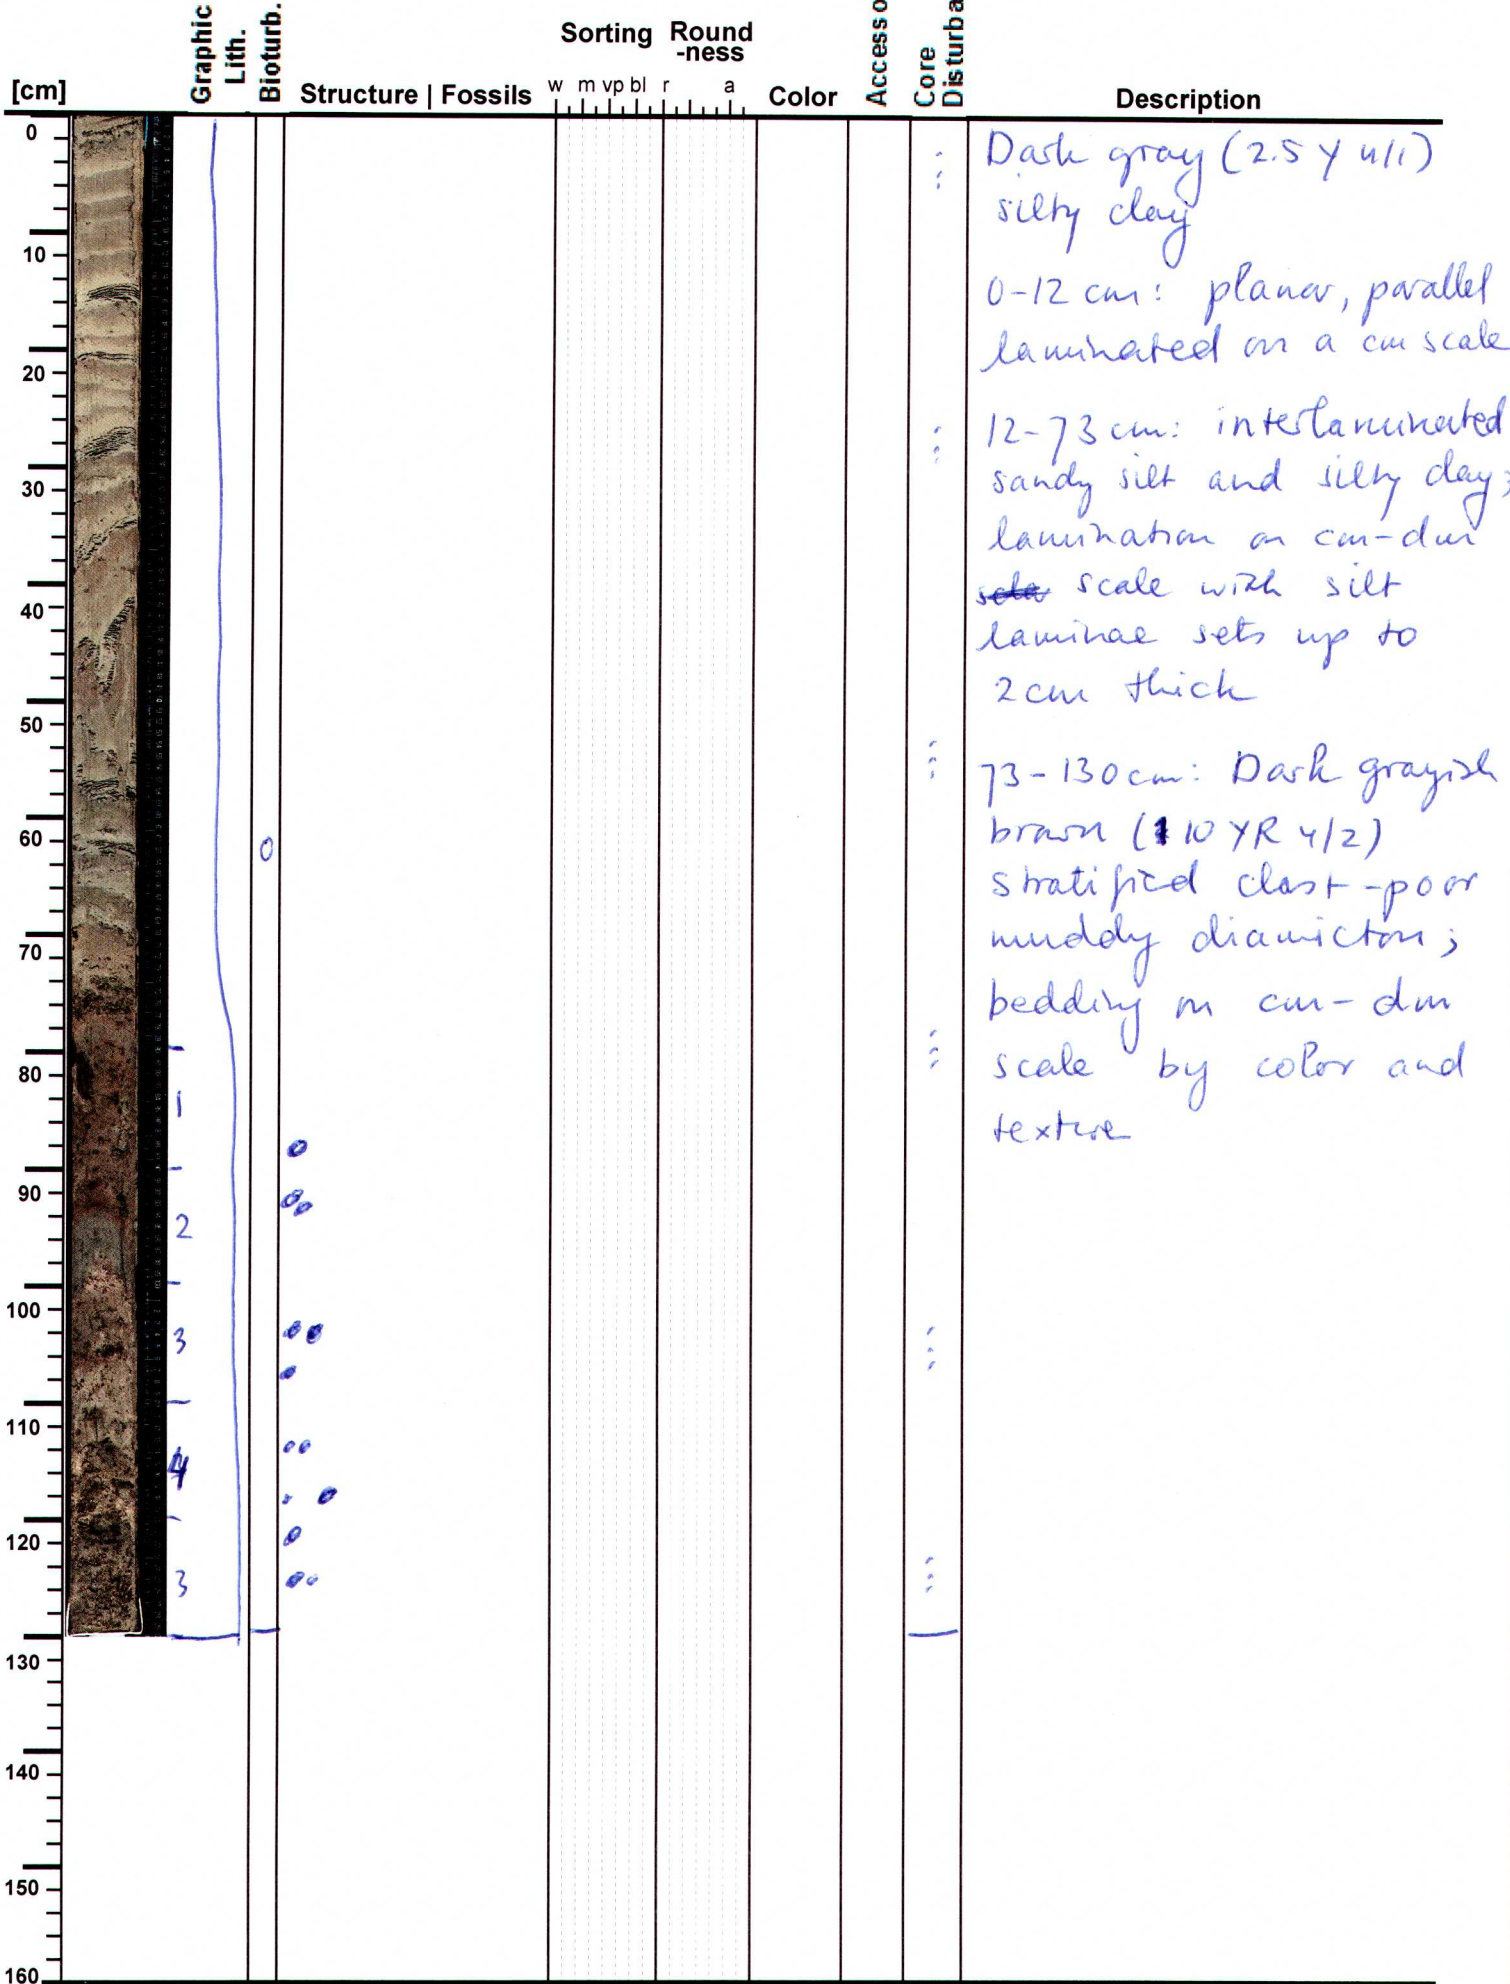 Graphic Lith.
Bioturb.
Accesso
Core Disturba
Sorting Round
-ness
[cm]
Structure | Fossils
w m vp bl r a
Color
Description
0
10
20
30
40
50
60
70
80
90
100
110
120
130
140
150
160
0
1
2
3
4
3
Dark gray (2.5 Y 4/1)
silty clay
0-12 cm: planar, parallel
laminated on a cm scale
12-73 cm: interlaminated
sandy silt and silty clay;
lamination on cm-dm
scale with silt
laminae sets up to
2 cm thick
73-130 cm: Dark grayish
brown (10 YR 4/2)
stratified clast-poor
muddy diamicton;
bedding on cm-dm
scale by color and
texture